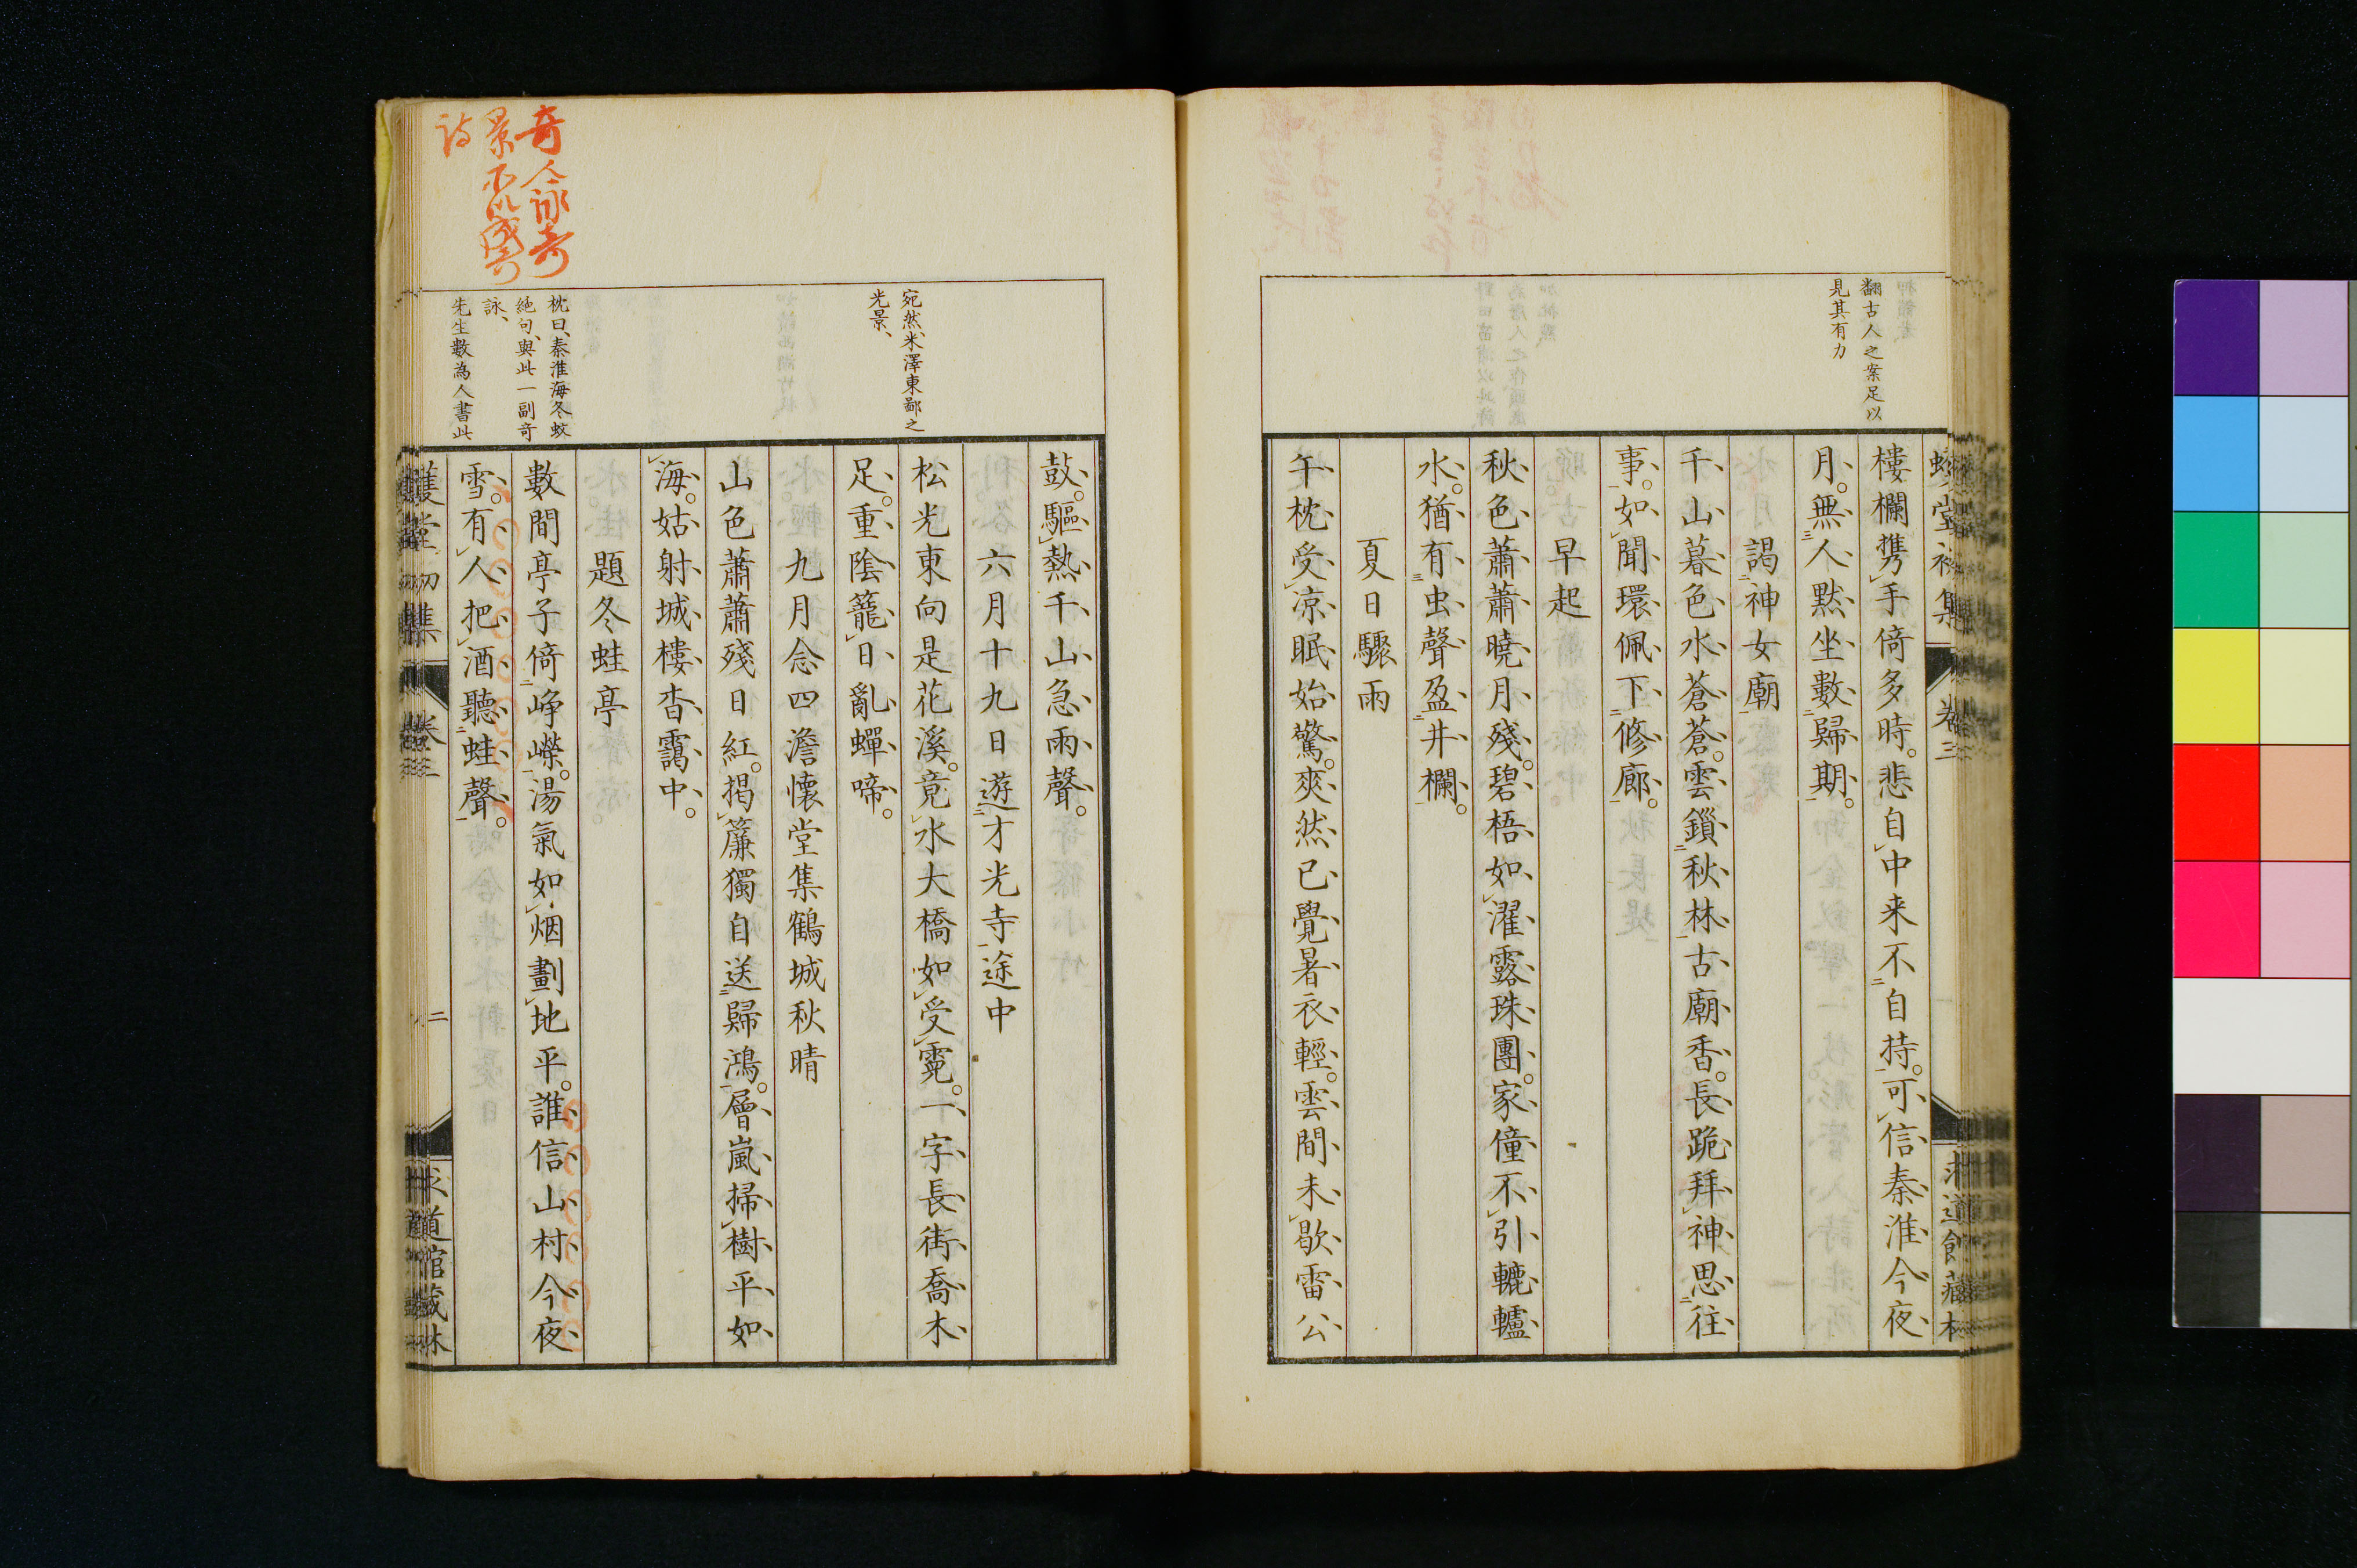 翻古人之案足以
見其有力
樓欄携手倚多時。悲自中来不自持。可信秦淮今夜
月。無人黙坐數歸期。
謁神女廟
千山暮色水蒼蒼。雲鎖秋林古廟香。長跪拜神思往
事。如聞環佩下修廊。
早起
秋色蕭蕭曉月殘。碧梧如濯露珠團。家僮不引轆轤
水。猶有虫聲盈井欄。
夏日驟雨
午枕受凉眠始驚。爽然已覺暑衣輕。雲間未歇雷公
卷三
宛然米澤東鄙之
光景、
枕曰、秦淮海冬蚊
絶句、與此一副奇
詠、
先生數為人書此
鼓。驅熱千山急雨聲。
六月十九日遊才光寺途中
松光東向是花溪。竟水大橋如受霓。一字長街喬木
足。重陰籠日亂蟬啼。
九月念四澹懷堂集鶴城秋晴
山色蕭蕭殘日紅。掲簾獨自送歸鴻。層嵐掃樹平如
海。姑射城樓杳靄中。
題冬蛙亭
數間亭子倚崢嶸。湯氣如烟劃地平。誰信山村今夜
雪。有人把酒聽蛙聲。
奇人詠奇
景
詩
二